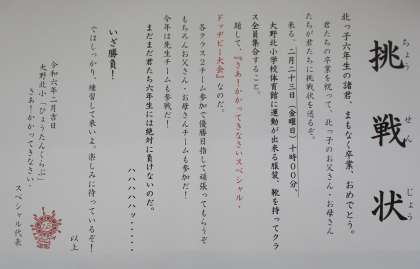 挑戦状
ちょう せん じょう
北っ子六年生の諸君、まもなく卒業、おめでとう。
君たちの卒業を祝って、北っ子のお父さん・お母さん
たちが君たちに挑戦状を送るぞ。
来る、二月二十三日（金曜日）十時００分、
大野北小学校体育館に運動が出来る服装、靴を持ってクラ
ス全員集合すること。
題して、『さあ！かかってきなさいスペシャル・
ドッヂビー大会』なのだ。
各クラス２チーム参加で優勝目指して頑張ってもらうぞ
もちろんお父さん・お母さんチームも参加だ！
今年は先生チームも参戦だ！
まだまだ君たち六年生には絶対に負けないのだ。
ハハハハハッ・・・・・
いざ勝負！
ではしっかり、練習して来いよ。楽しみに待っているぞ！
以上
令和六年二月吉日
大野北小「ひょうたんくらぶ」
さあ！かかってきなさい
スペシャル代表